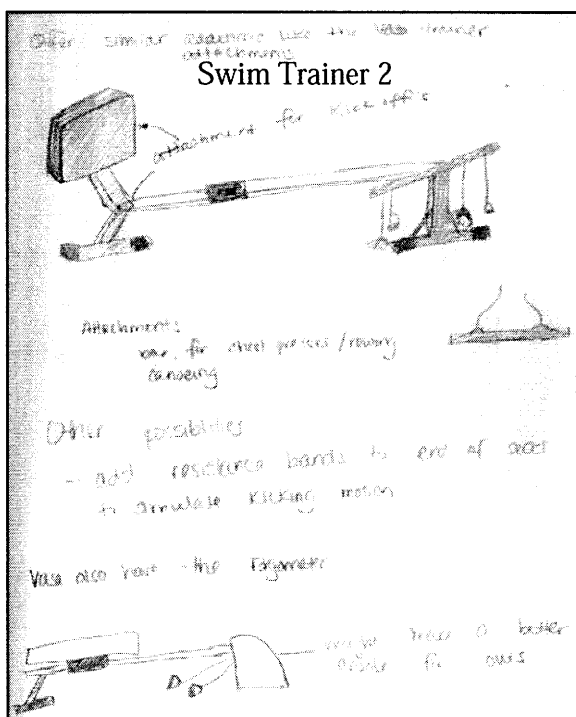 Other similar like the Vasa trainer
attachment
Swim Trainer 2
attachment for kick off's
Attachments
bar, for chest presses / rowing
canoeing
Other possibilities
- add resistance bands to end of
to simulate kicking motion
Vasa also have the Ergometer
might have a better
for ours